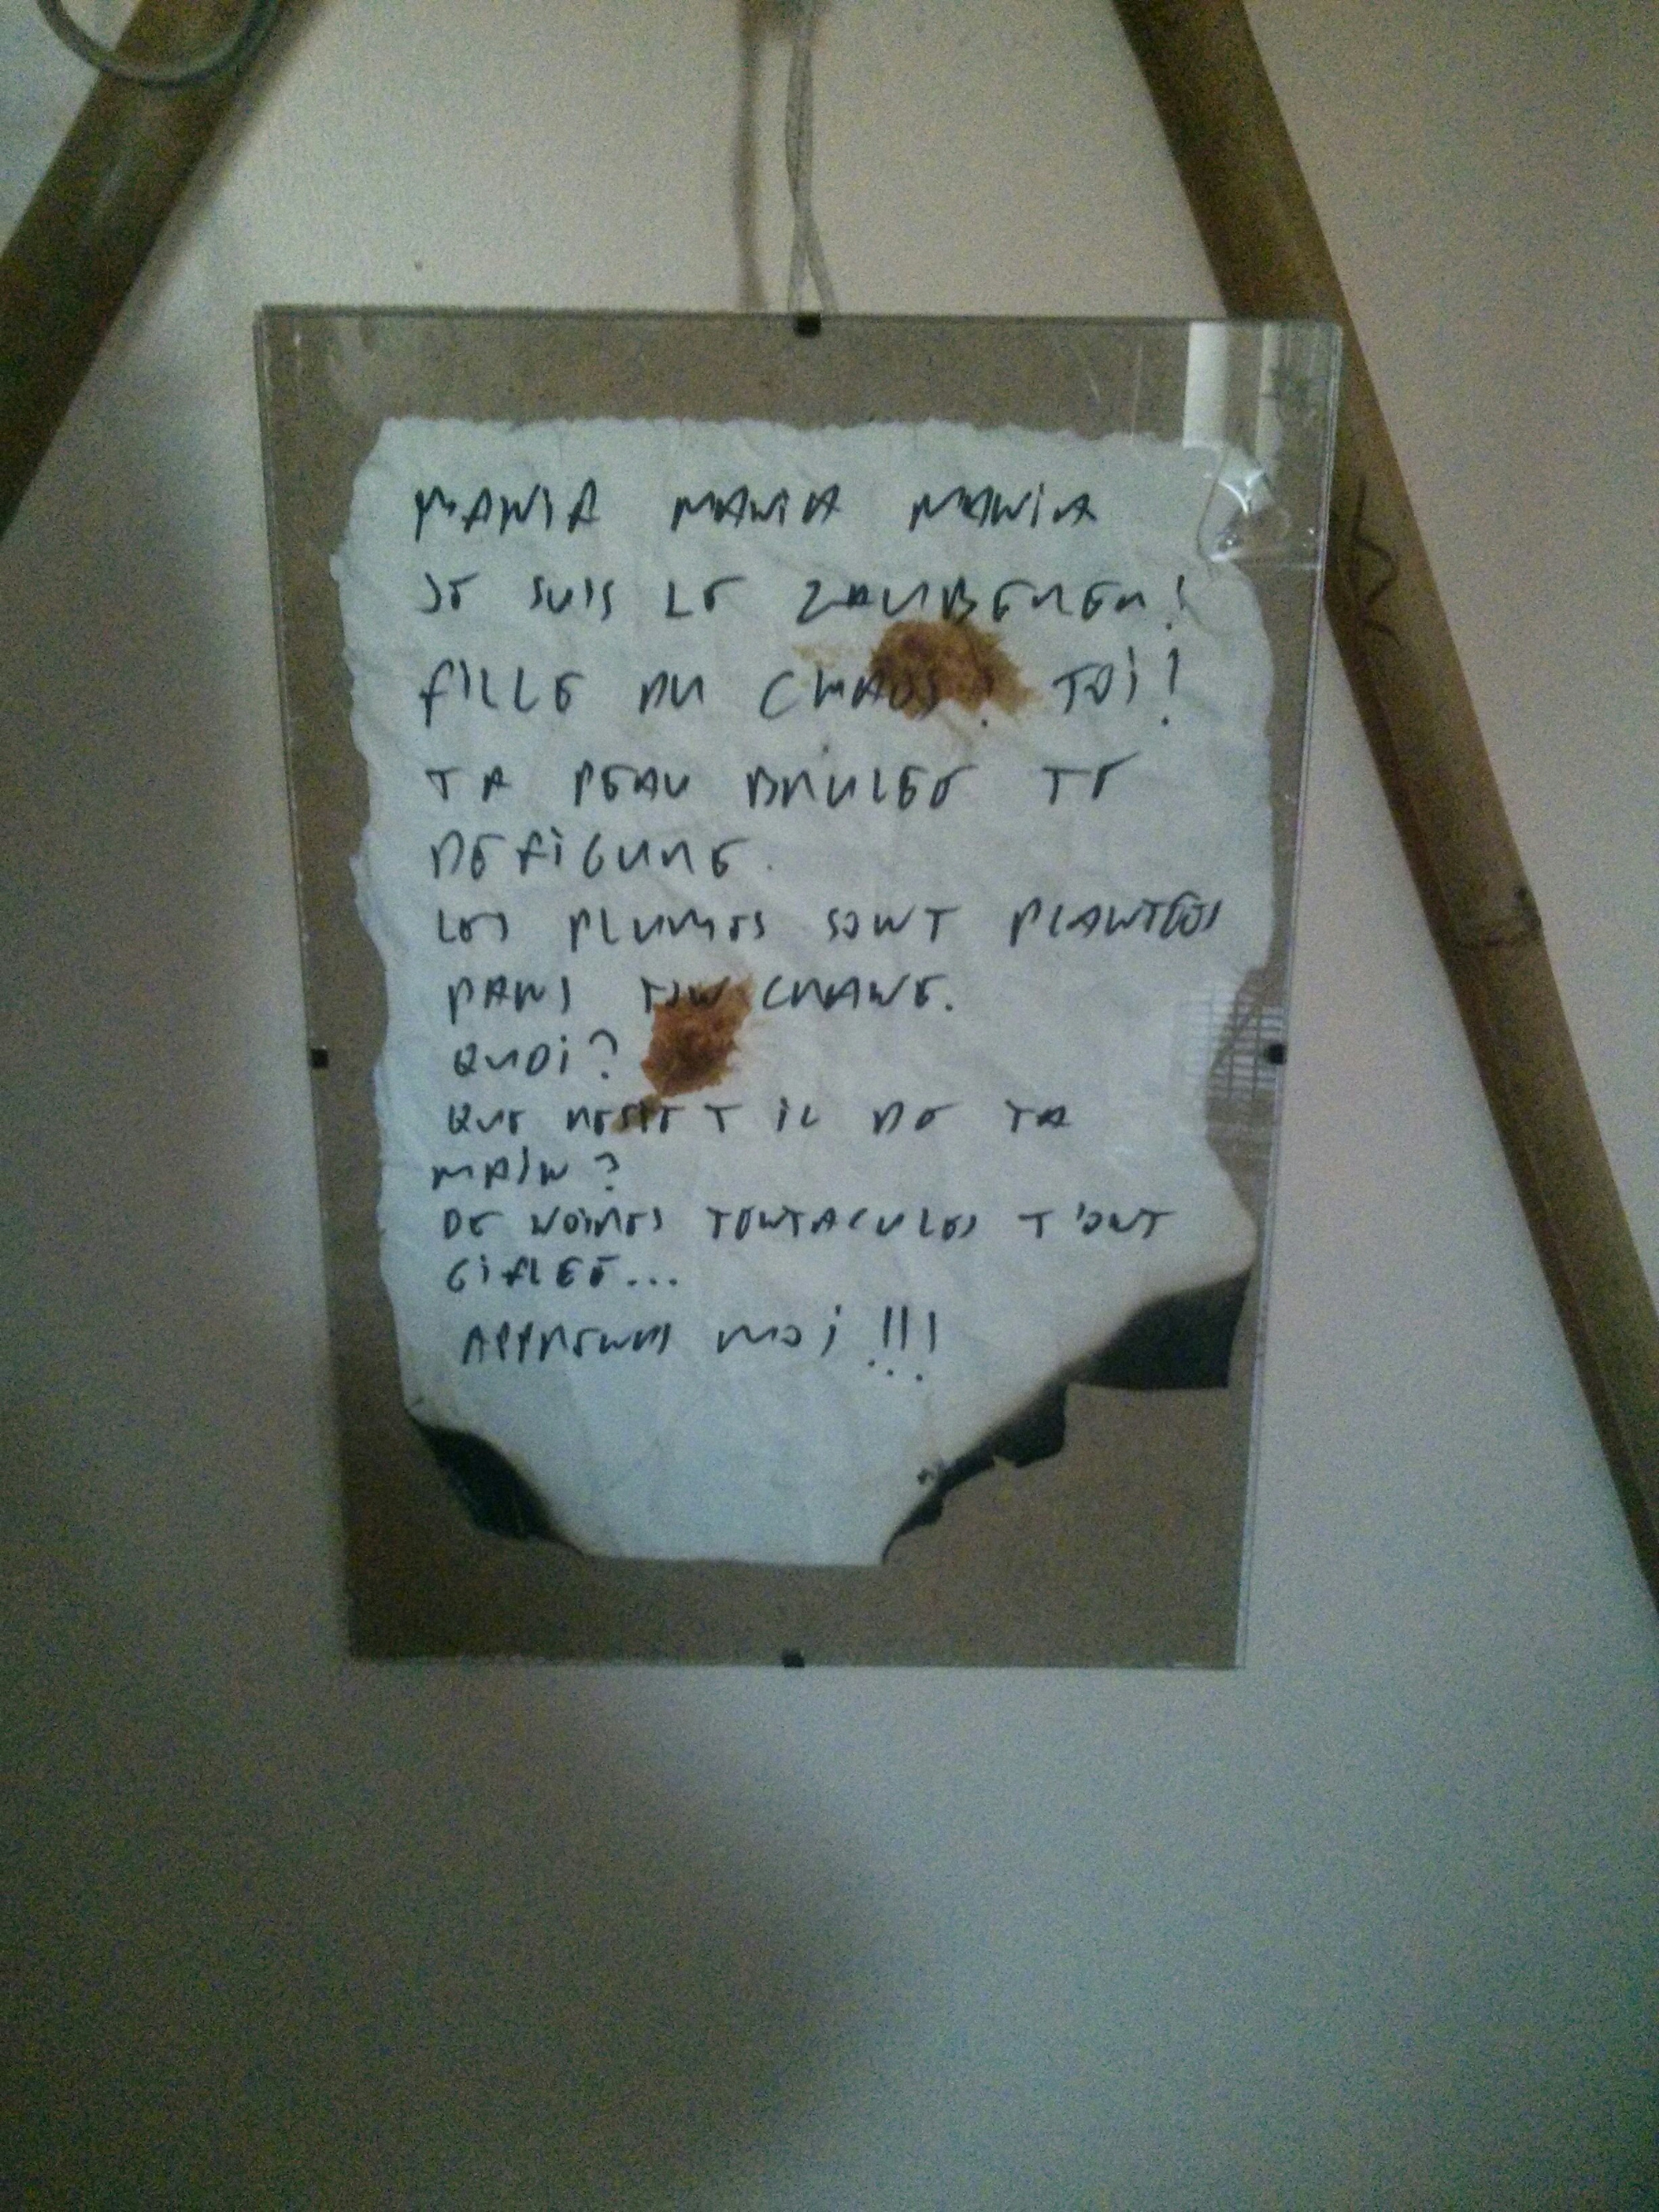 MANIA MANIA MANIA
JE SUIS LE ZAUBERER!
FILLE DU CHAOS! TOI!
TA PEAU BRULEE TE
DEFIGURE.
LES PLUMES SONT PLANTEES
DANS TON CRANE.
QUOI?
QUE RESTE T IL DE TA
MAIN?
DE NOIRES TENTACULES T'ONT
GIFLEE...
APPRENDS MOI!!!